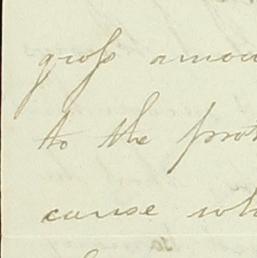 gross amou
to the prot
cause wh